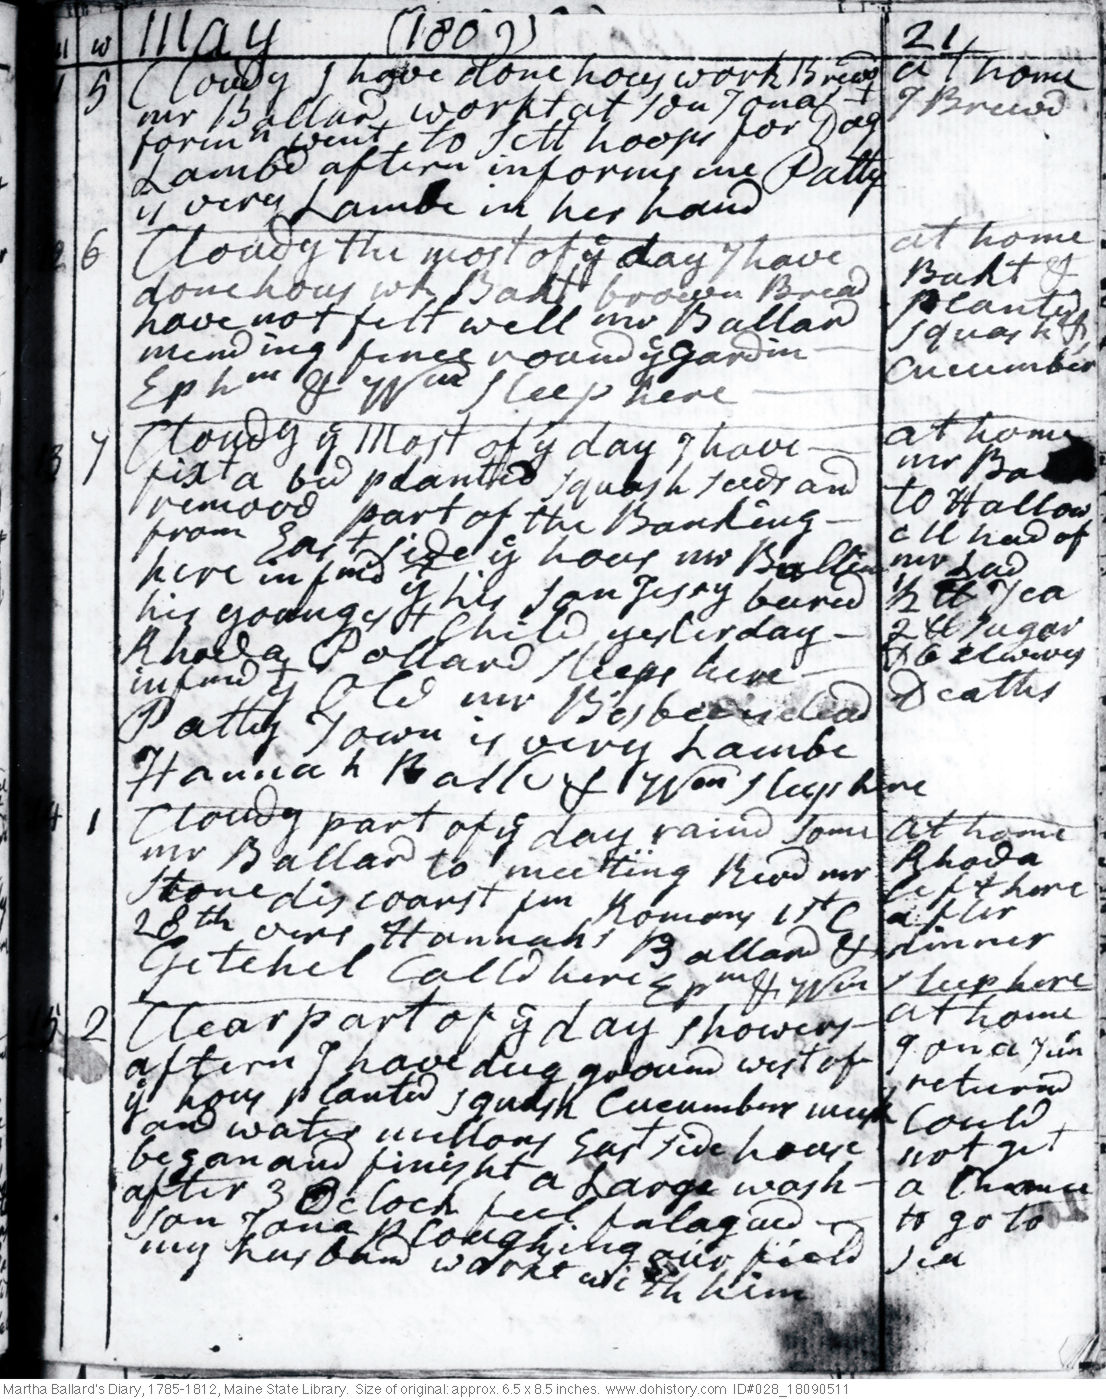 m w May (1809) 21
1 5 Cloudy I have done hous work Brewd
mr Ballard workt at son Jonas
forenn went to Sett hoops for Dag
Lambd aftern informs me Patty
is very Lambe in her hand
at home
I Brewd
2 6 Cloudy the most of ÿ day I have
done hous wk Bakt brown Bread
have not felt well mr Ballard
mending fence round ÿ Gardin
Ephm & Wm Sleep here
at home
Bakt &
planted
squash &
Cucumber
13 7 Cloudy ÿ Most of ÿ day I have
fixt a bed planted squash seeds and
remood part of the Banking
from East side ÿ hous mr Ballin
here infmd ÿ his son Jessy buried
his youngest Child yesterday
Rhoda Pollard sleeps here
infmd ÿ Old mr Bisbee is dead
Patty Town is very Lambe
Hannah Balld & Wm sleep here
at home
mr Ba
to Hallow
ell had of
mr Lad
½ lb Tea
2 lb sugar
Deaths
14 1 Cloudy part of ÿ day raind some
mr Ballard to meeting Revd mr
Stone discoarst fm Romans 1st C
28th vers Hannahs Ballard &
Getchel Calld here Epm & Wm sleep here
at home
Rhoda
left here
after
dinner
15 2 Clear part of ÿ day showers
aftern I have dug ground west of
ÿ hous planted squash Cucumbers musk
and water millons East side house
began and finisht a Large wash
after 3 O Clock feel fatagued
son Jona Ploughing our field
my husband workt with him
at home
Jona Jun
returnd
Could
not get
a Chance
to go to
sea
Martha Ballard's Diary, 1785-1812, Maine State Library. Size of original: approx. 6.5 x 8.5 inches. www.dohistory.com ID#028_18090511